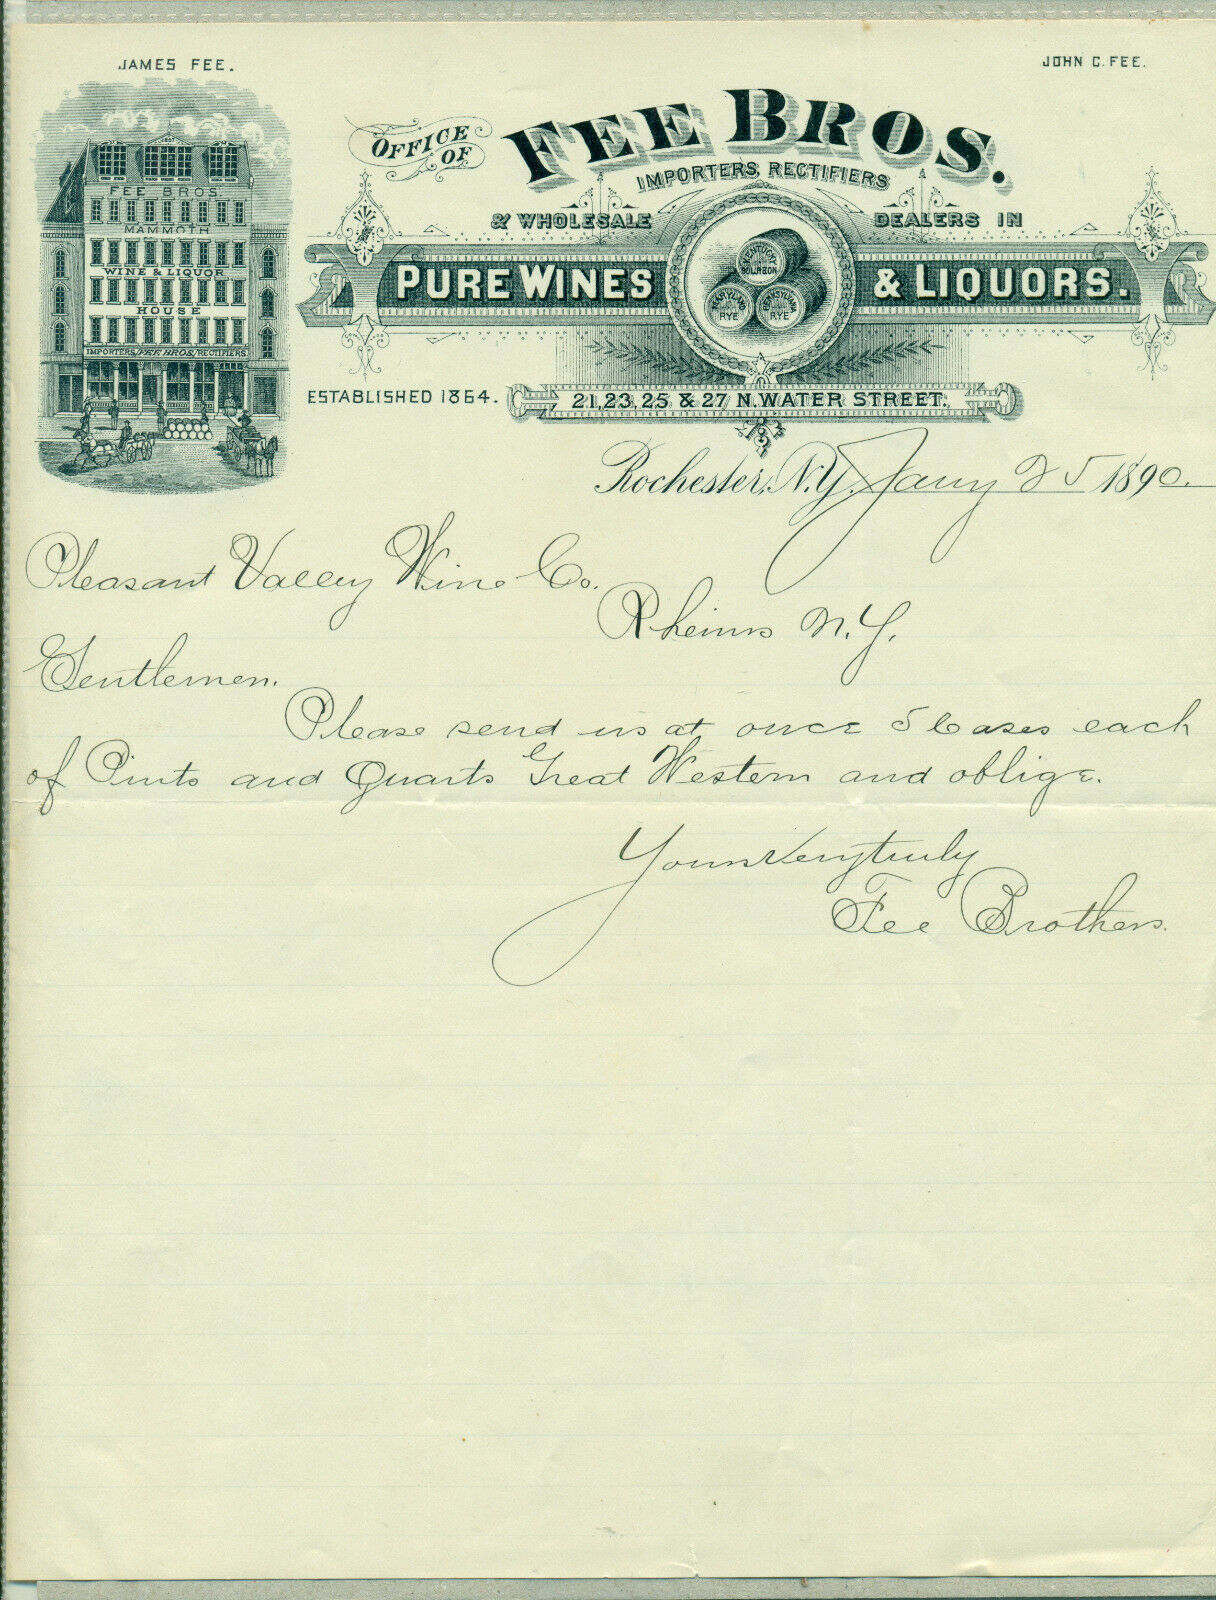 JAMES FEE.
JOHN C. FEE.
OFFICE OF
FEE BROS.
IMPORTERS, RECTIFIERS
& WHOLESALE DEALERS IN
PURE WINES & LIQUORS.
KENTUCKY BOURBON
PENNSYLVANIA RYE
PENNSYLVANIA RYE
FEE BROS.
MAMMOTH
WINE & LIQUOR
HOUSE
IMPORTERS/FEE BROS/RECTIFIERS
ESTABLISHED 1864.
21, 23, 25 & 27 N. WATER STREET.
Rochester, N.Y. Jany 25 1890.
Pleasant Valley Wine Co.
Rheims N.Y.
Gentlemen.
Please send us at once 5 Cases each
of Pints and Quarts Great Western and oblige.
Yours Very truly
Fee Brothers.